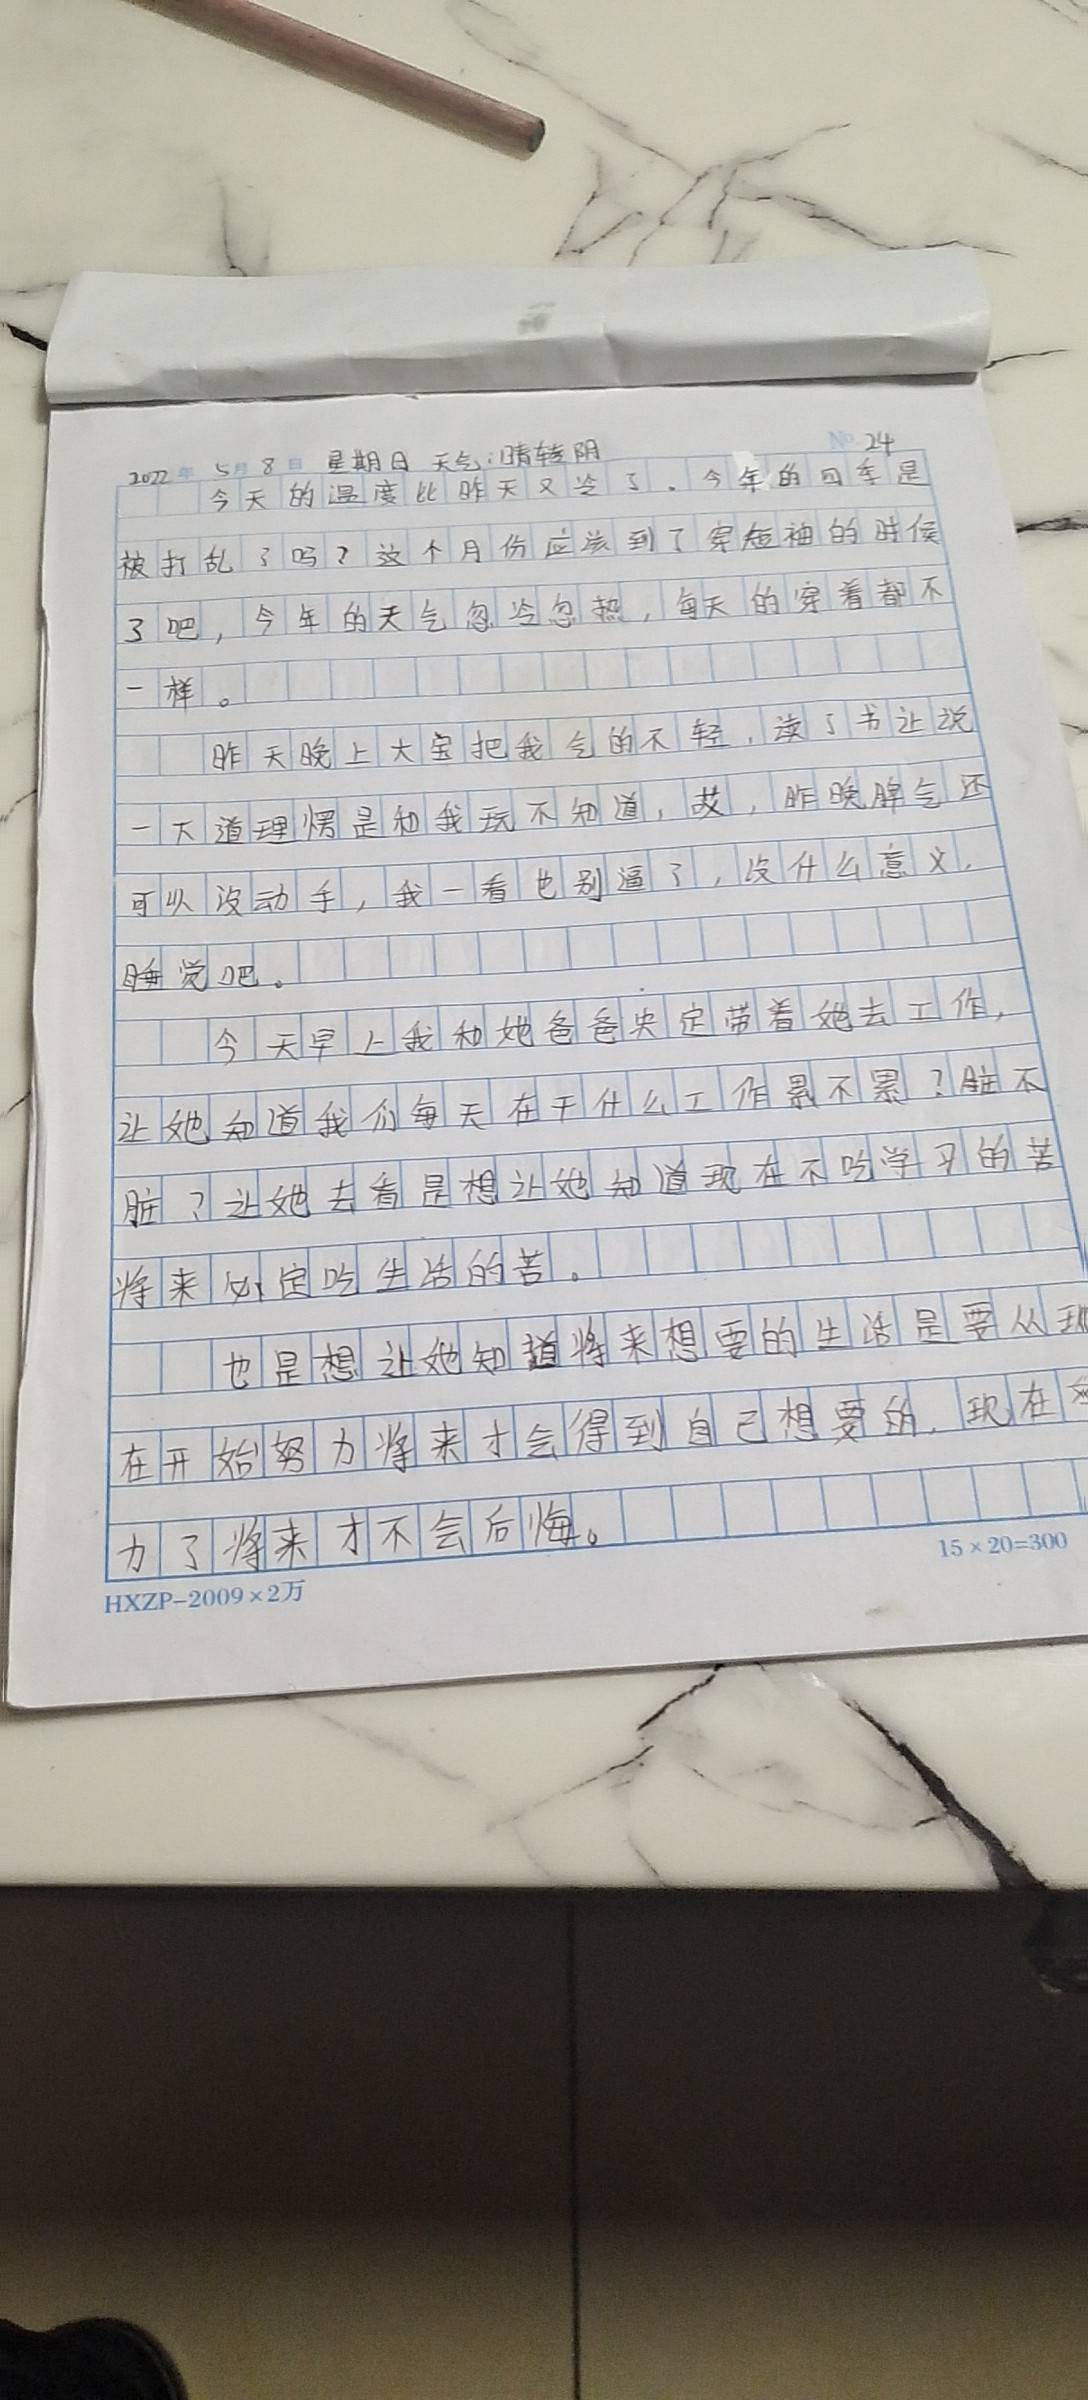 No. 24
2022年 5月 8日 星期日 天气:晴转阴
今天的温度比昨天又冷了。今年的四季是
被打乱了吗?这个月份应该到了穿短袖的时候
了吧,今年的天气忽冷忽热,每天的穿着都不
一样。
昨天晚上大宝把我气的不轻,读了书让说
一大道理愣是和我玩不知道,哎,昨晚脾气还
可以没动手,我一看也别逼了,没什么意义,
睡觉吧。
今天早上我和她爸爸决定带着她去工作,
让她知道我们每天在干什么工作累不累?脏不
脏?让她去看是想让她知道现在不吃学习的苦
将来必定吃生活的苦。
也是想让她知道将来想要的生活是要从现
在开始努力将来才会得到自己想要的,现在
力了将来才不会后悔。
15×20=300
HXZP-2009×2万